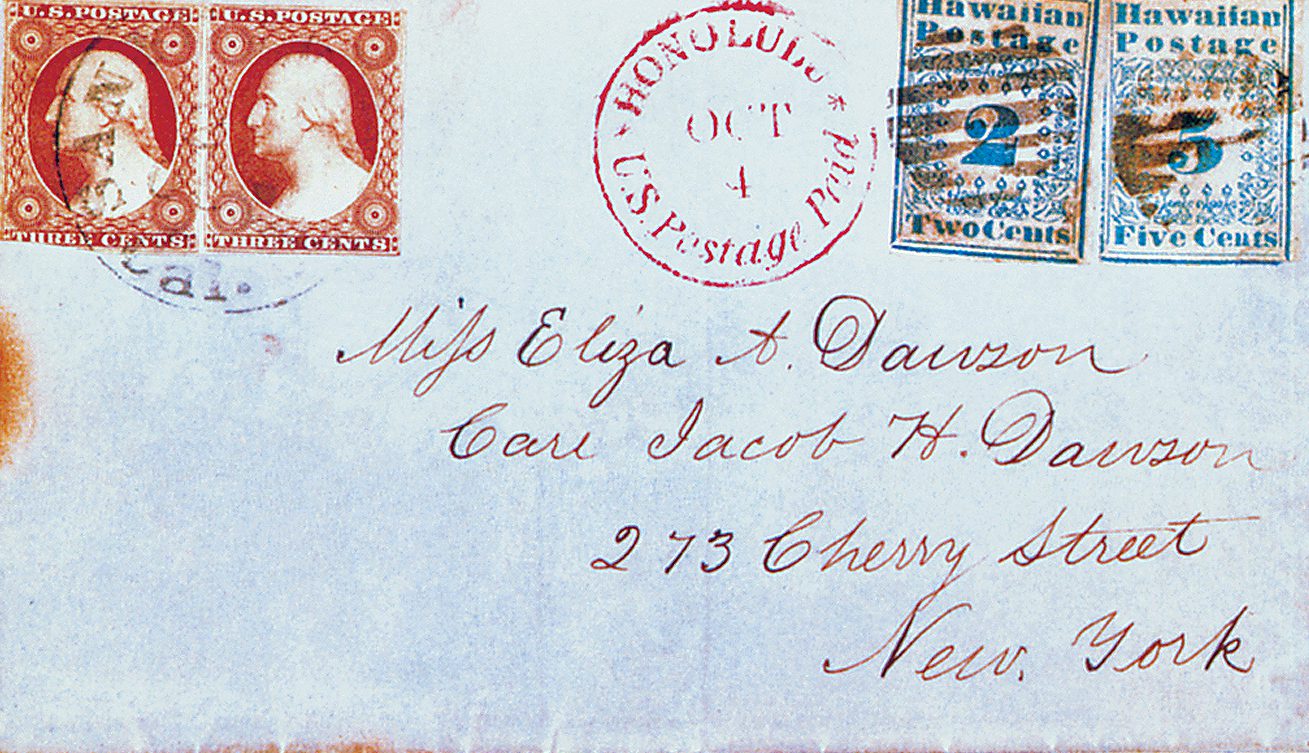 U.S. POSTAGE
THREE CENTS
U.S. POSTAGE
THREE CENTS
Cal.
HONOLULU
OCT
4
U.S. Postage Paid
Hawaiian
Postage
2
Two Cents
Hawaiian
Postage
5
Five Cents
Miss Eliza A. Dawson
Care Jacob H. Dawson
273 Cherry Street
New York